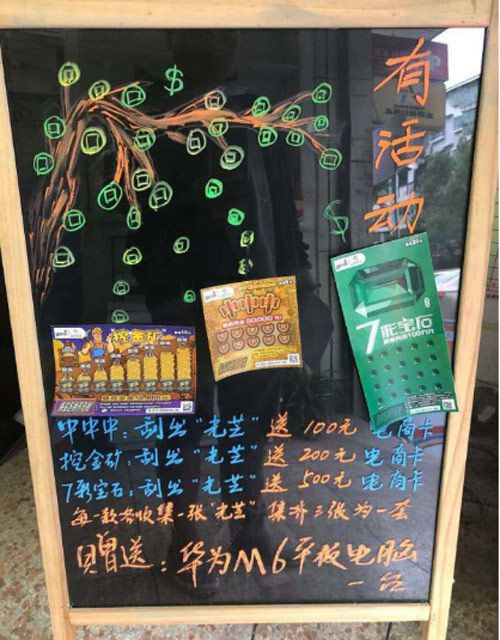 有活动
中中中
50,000元
挖金矿
7彩宝石
最高奖金100万元
中中中：刮出“光芒”送100元 电商卡
挖金矿：刮出“光芒”送200元 电商卡
7彩宝石：刮出“光芒”送500元 电商卡
每一款各收集一张“光芒”集齐三张为一套
赠送：华为M6平板电脑
一台